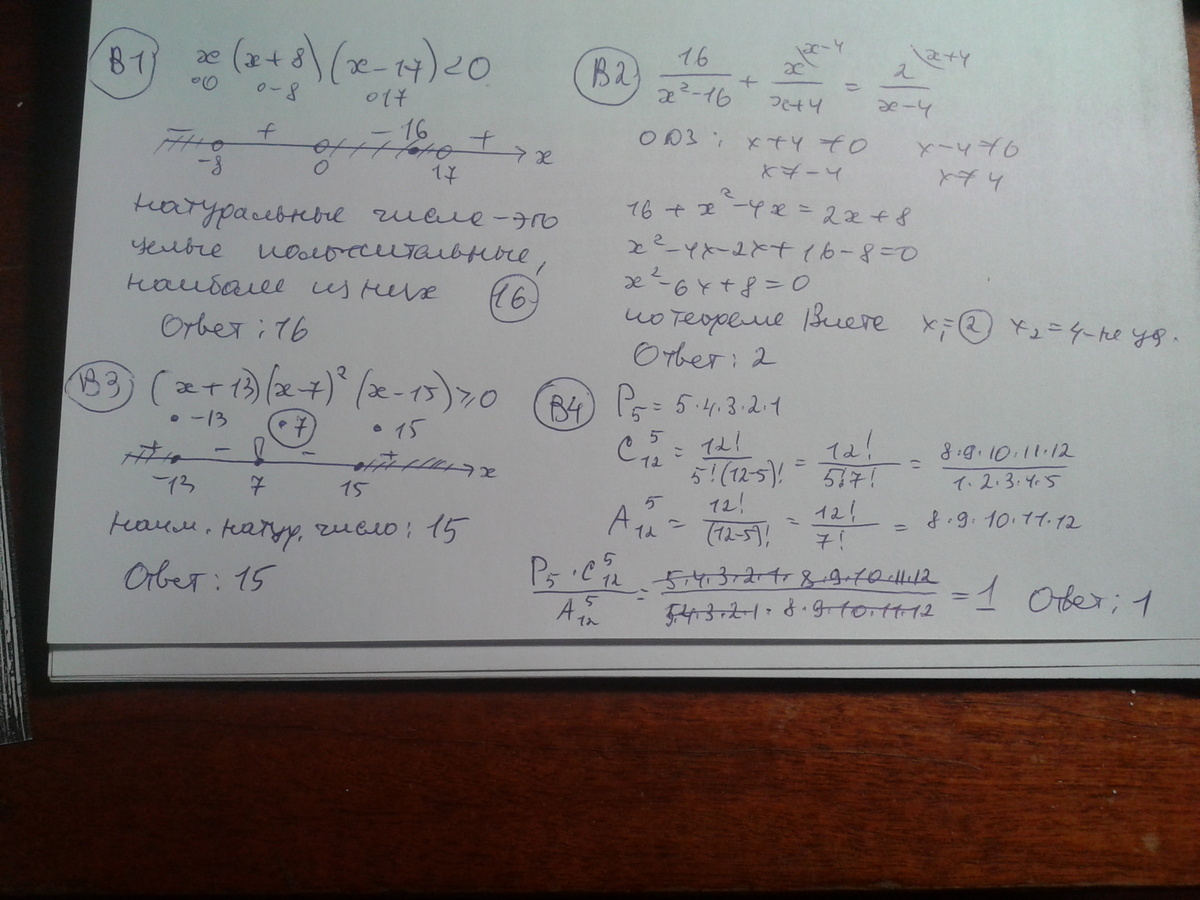 В1 x (x+8) (x-17) < 0
°0 °-8 °17
- + - 16 +
-8 0 17 x
натуральные числа - это
целые положительные,
наиболее из них 16
Ответ: 16
В2 16/(x²-16) + x\x-4/(x+4) = 2\x+4/(x-4)
ОДЗ: x+4≠0 x-4≠0
x≠-4 x≠4
16 + x² - 4x = 2x + 8
x² - 4x - 2x + 16 - 8 = 0
x² - 6x + 8 = 0
по теореме Виета x₁=2 x₂=4 - не уд.
Ответ: 2
В3 (x+13)(x-7)² (x-15) ≥ 0
• -13 • 7 • 15
+ - - +
-13 7 15 x
наим. натур. число: 15
Ответ: 15
В4 P₅ = 5·4·3·2·1
C₁₂⁵ = 12!/(5!(12-5)!) = 12!/(5!7!) = (8·9·10·11·12)/(1·2·3·4·5)
A₁₂⁵ = 12!/(12-5)! = 12!/7! = 8·9·10·11·12
(P₅·C₁₂⁵)/A₁₂⁵ = (5·4·3·2·1·8·9·10·11·12)/(5·4·3·2·1·8·9·10·11·12) = 1 Ответ: 1